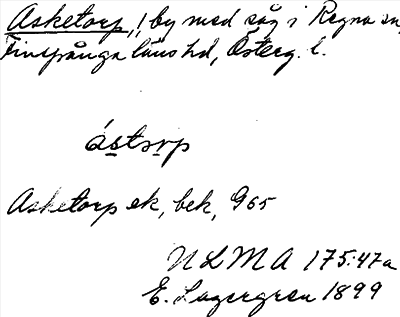 Asketorp, by med såg i Regna sn,
Finspånga läns hd, Österg. l.
åstorp
Asketorp ek, bek, G 65
ULMA 175:47a
E. Lagergren 1899